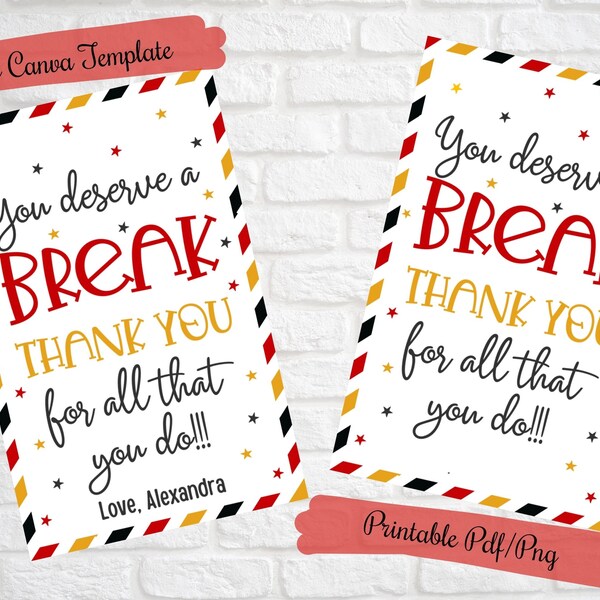 Canva Template
You deserve a
BREAK
THANK YOU
for all that
you do!!!
Love, Alexandra
You deserve
BREAK
THANK YOU
for all that
you do!!!
Printable Pdf/Png